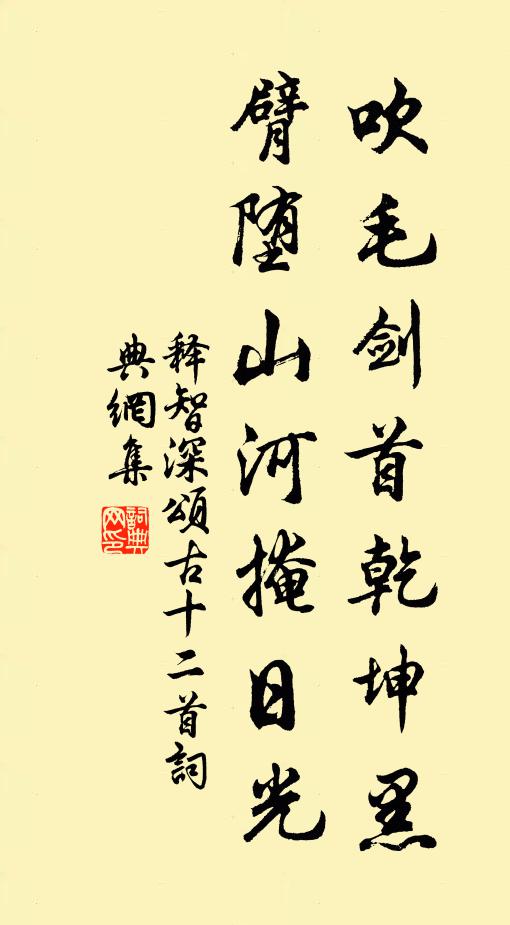 吹毛剑首乾坤黑
臂堕山河掩日光
释智深頌古十二首詞
典網集
詞典網印